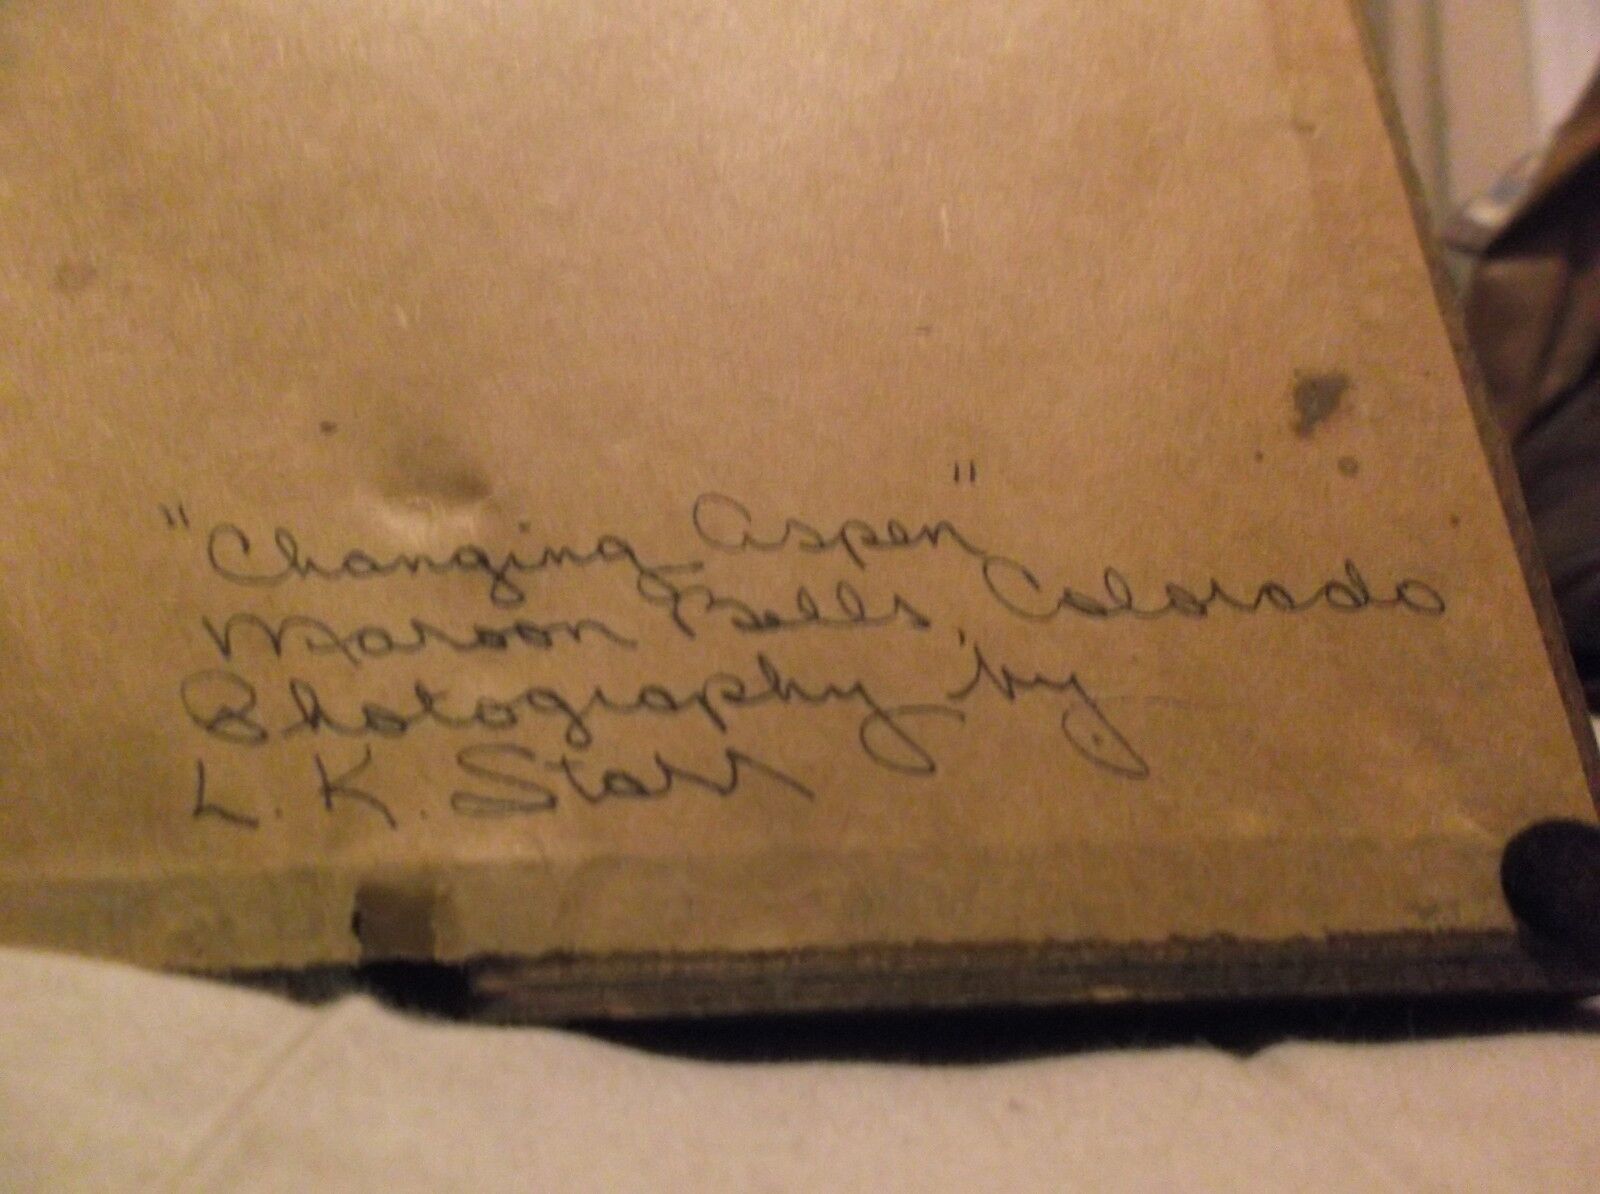 "Changing Aspen"
Maroon Bells, Colorado
Photography by
L. K. Starr